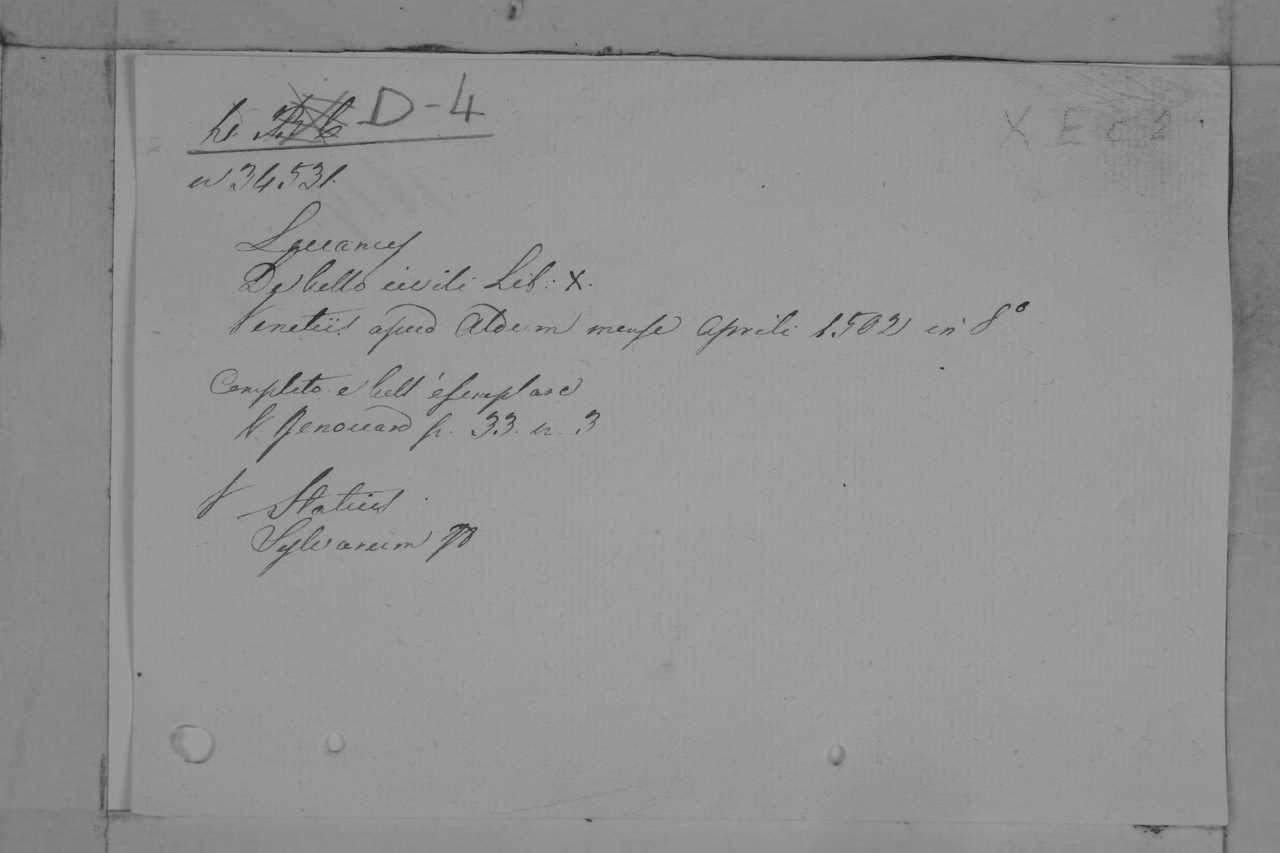 D-4
X E c 2
n 34531.
Lucanus
De bello civili Lib: X.
Venetiis apud Aldum mense Aprili 1502 in 8°
Completo e bell' esemplare
V Renouard p. 33. n. 3
V Statius
Sylvarum